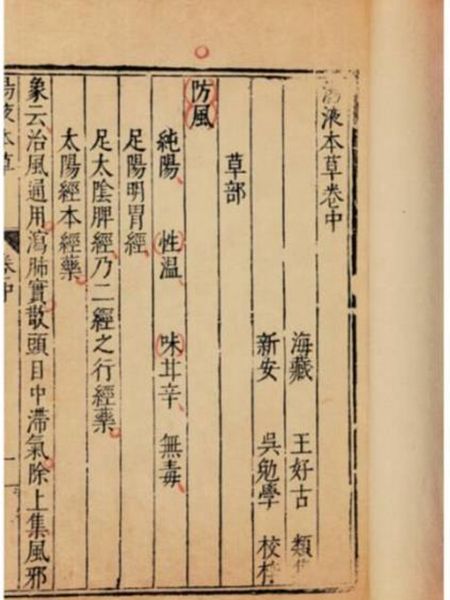 湯液本草卷中
海藏 王好古 類集
新安 吳勉學 校
草部
防風
純陽 性溫 味甘辛 無毒
足陽明胃經
足太陰脾經乃二經之行經藥
太陽經本經藥
象云治風通用瀉肺實散頭目中滯氣除上焦風邪
湯液本草 卷中